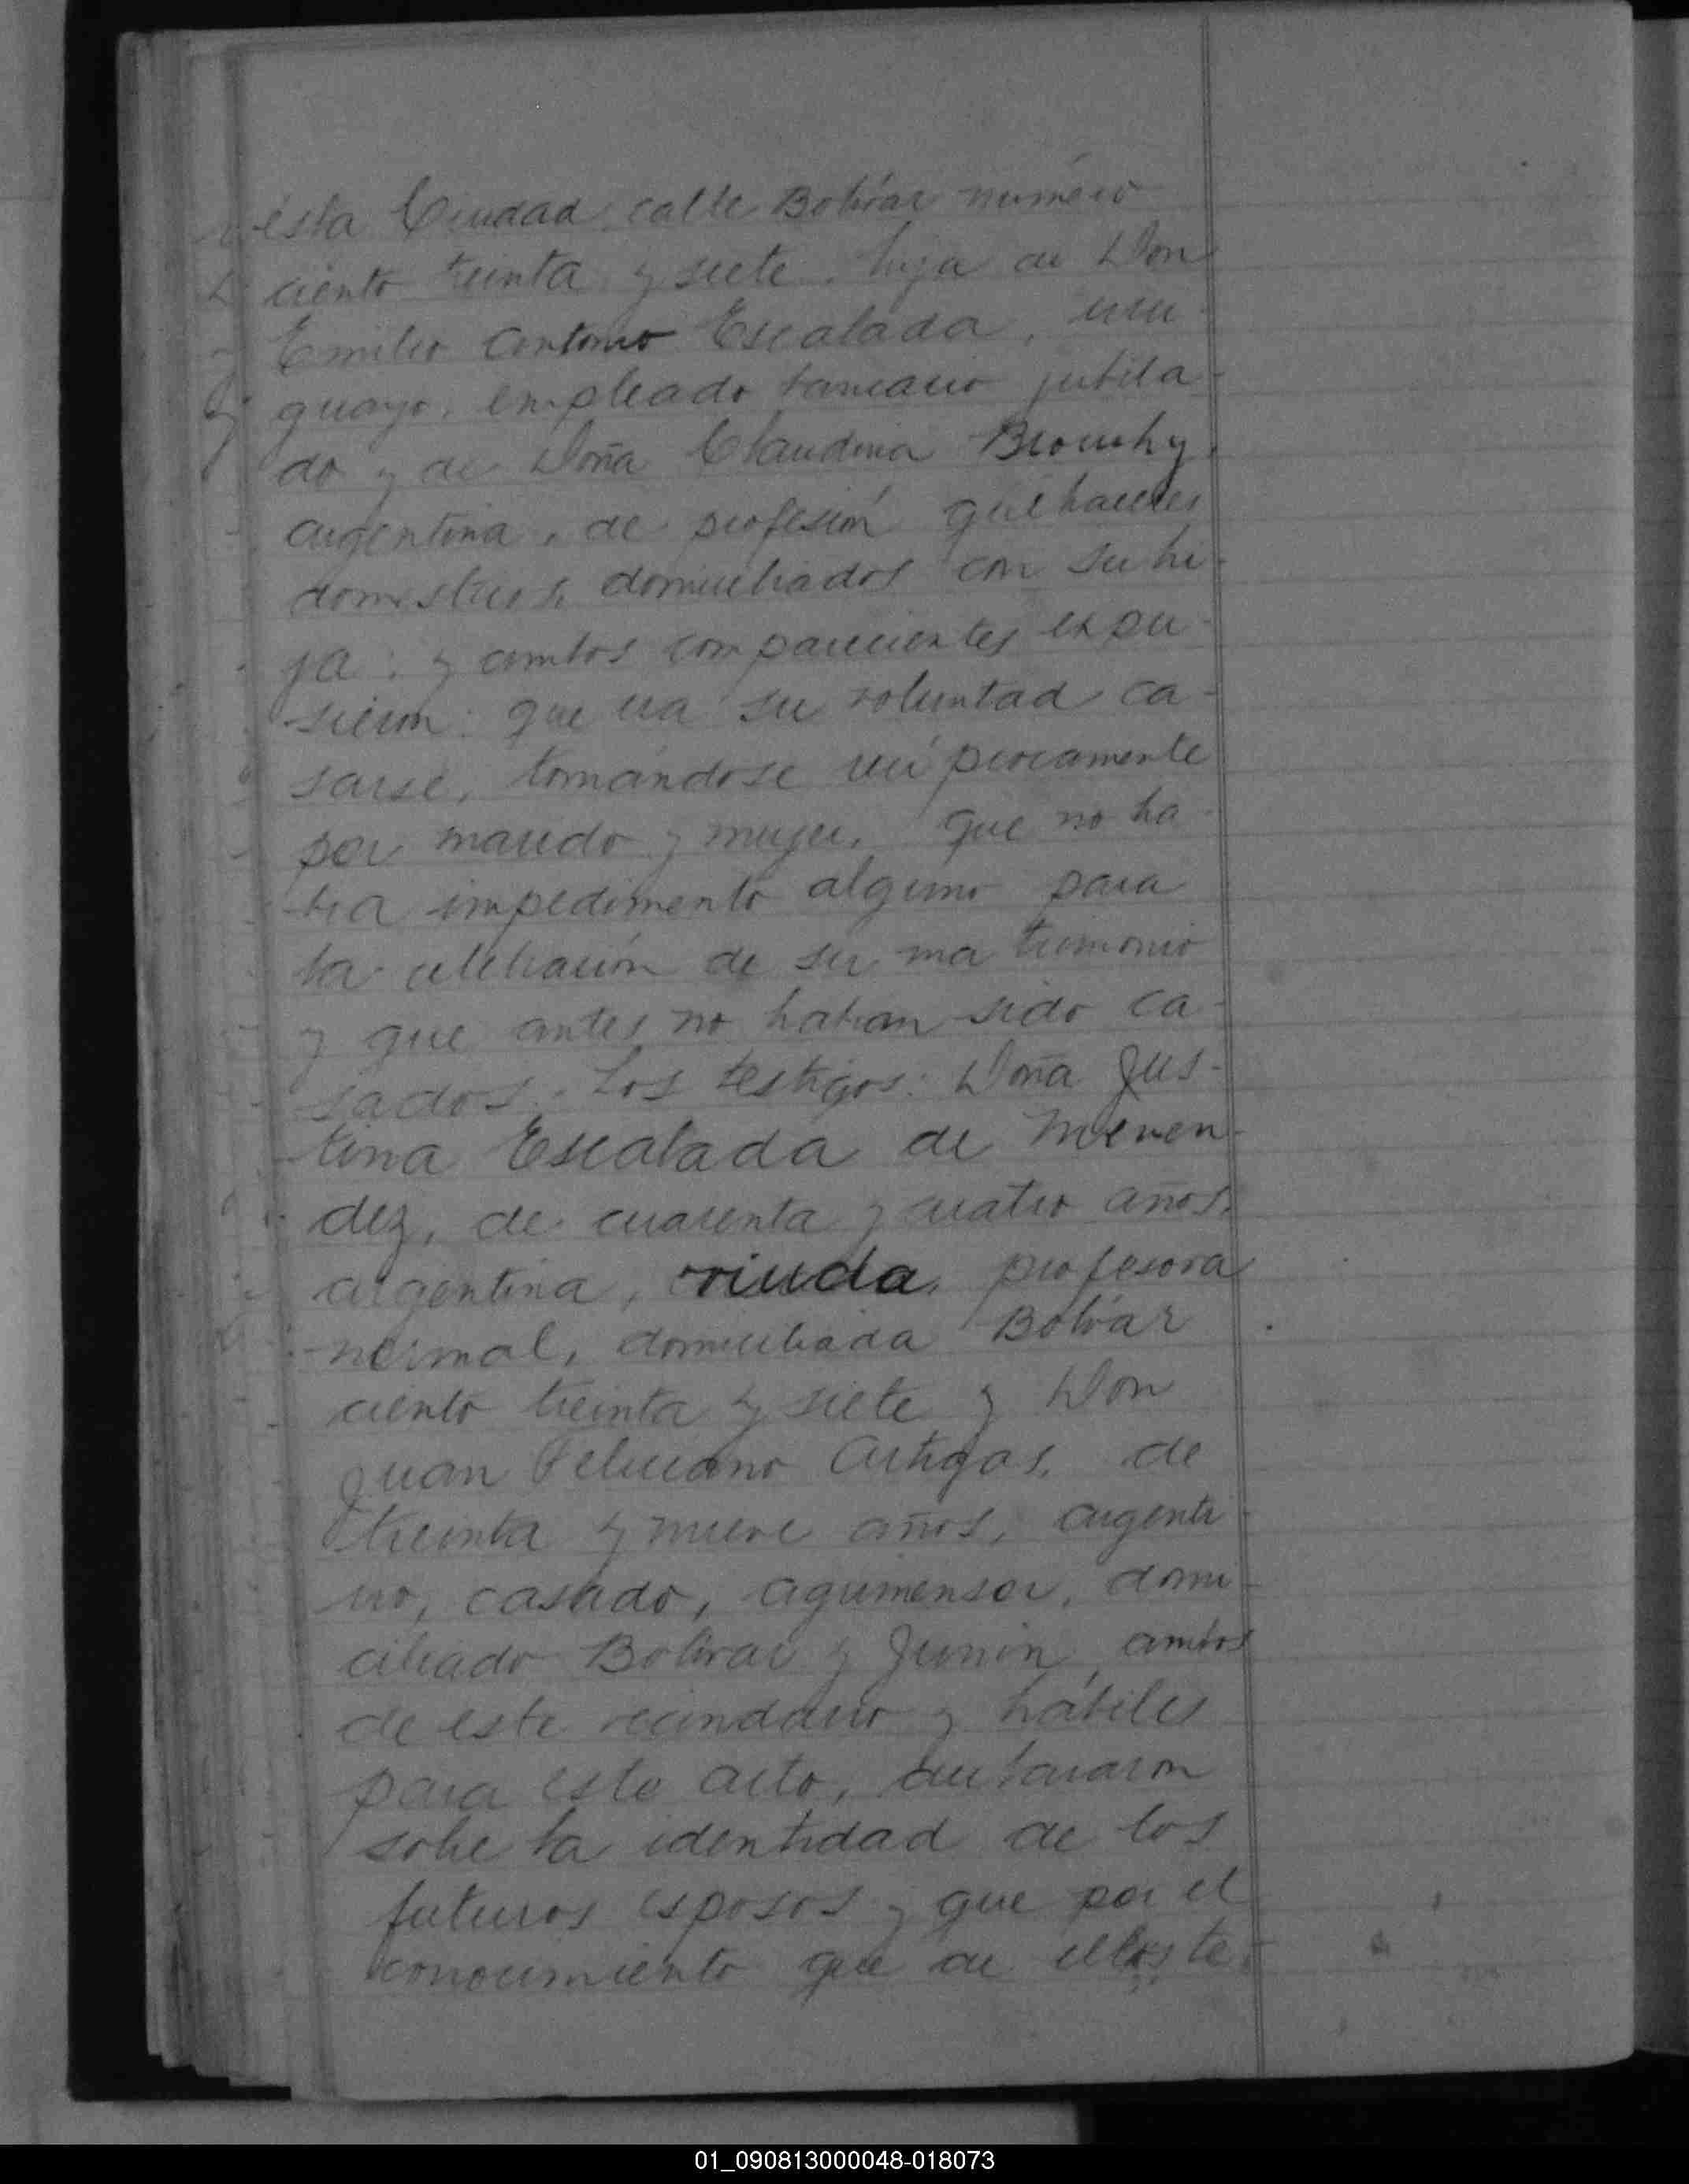 ésta Ciudad, calle Bolívar número
ciento treinta y siete, hija de Don
Emilio Antonio Escalada, uru-
guayo, empleado bancario jubila-
do y de Doña Claudina
argentina, de profesión quehaceres
domésticos, domiciliados con su hi-
ja; y ambos comparecientes expu-
sieron: que era su voluntad ca-
sarse, tomándose recíprocamente
por marido y mujer, que no ha-
bía impedimento alguno para
la celebración de su matrimonio
y que antes no habían sido ca-
sados. Los testigos: Doña Jus-
tina Escalada de Menen-
dez, de cuarenta y cuatro años,
argentina, viuda, profesora
normal, domiciliada Bolívar
ciento treinta y siete y Don
Juan Feliciano Artigas, de
treinta y nueve años, argenti-
no, casado, agrimensor, domi-
ciliado Bolívar y Junín, ambos
de este vecindario y hábiles
para este acto, declararon
sobre la identidad de los
futuros esposos y que por el
conocimiento que de ellos te-
01_090813000048-018073